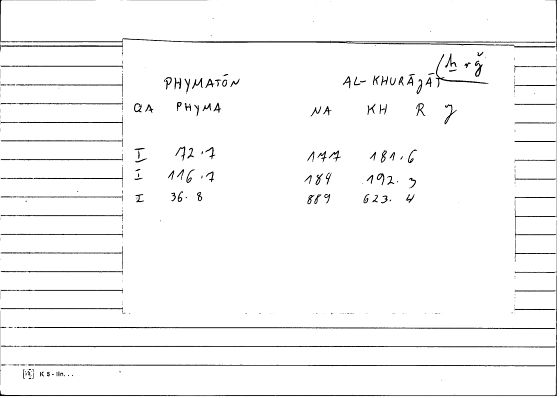 (ḫ r ǧ
PHYMATŌN AL-KHURĀJĀT
QA PHYMA NA KH R J
I 72.7 177 181.6
I 116.7 184 192.3
I 36.8 889 623.4
K 5 -